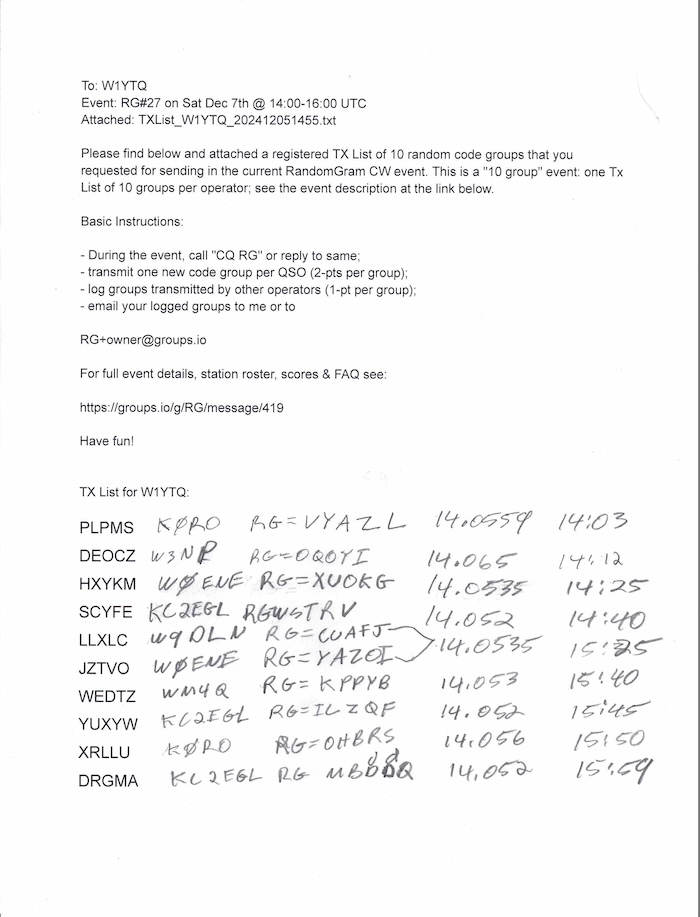 To: W1YTQ
Event: RG#27 on Sat Dec 7th @ 14:00-16:00 UTC
Attached: TXList_W1YTQ_202412051455.txt
Please find below and attached a registered TX List of 10 random code groups that you
requested for sending in the current RandomGram CW event. This is a "10 group" event: one Tx
List of 10 groups per operator; see the event description at the link below.
Basic Instructions:
- During the event, call "CQ RG" or reply to same;
- transmit one new code group per QSO (2-pts per group);
- log groups transmitted by other operators (1-pt per group);
- email your logged groups to me or to
RG+owner@groups.io
For full event details, station roster, scores & FAQ see:
https://groups.io/g/RG/message/419
Have fun!
TX List for W1YTQ:
PLPMS KØRO RG=VYAZL 14.0559 14:03
DEOCZ W3NP RG=OQOYI 14.065 14:12
HXYKM WØENE RG=XUOKG 14.0535 14:25
SCYFE KC2EGL RGWSTRV 14.052 14:40
LLXLC W9DLN RG=CUAFJ 14.0535 15:25
JZTVO WØENE RG=YAZOI
WEDTZ WM4Q RG=KPPYB 14.053 15:40
YUXYW KC2EGL RG=ILZQF 14.052 15:45
XRLLU KØRO RG=OHBRS 14.056 15:50
DRGMA KC2EGL RG 14.052 15:59